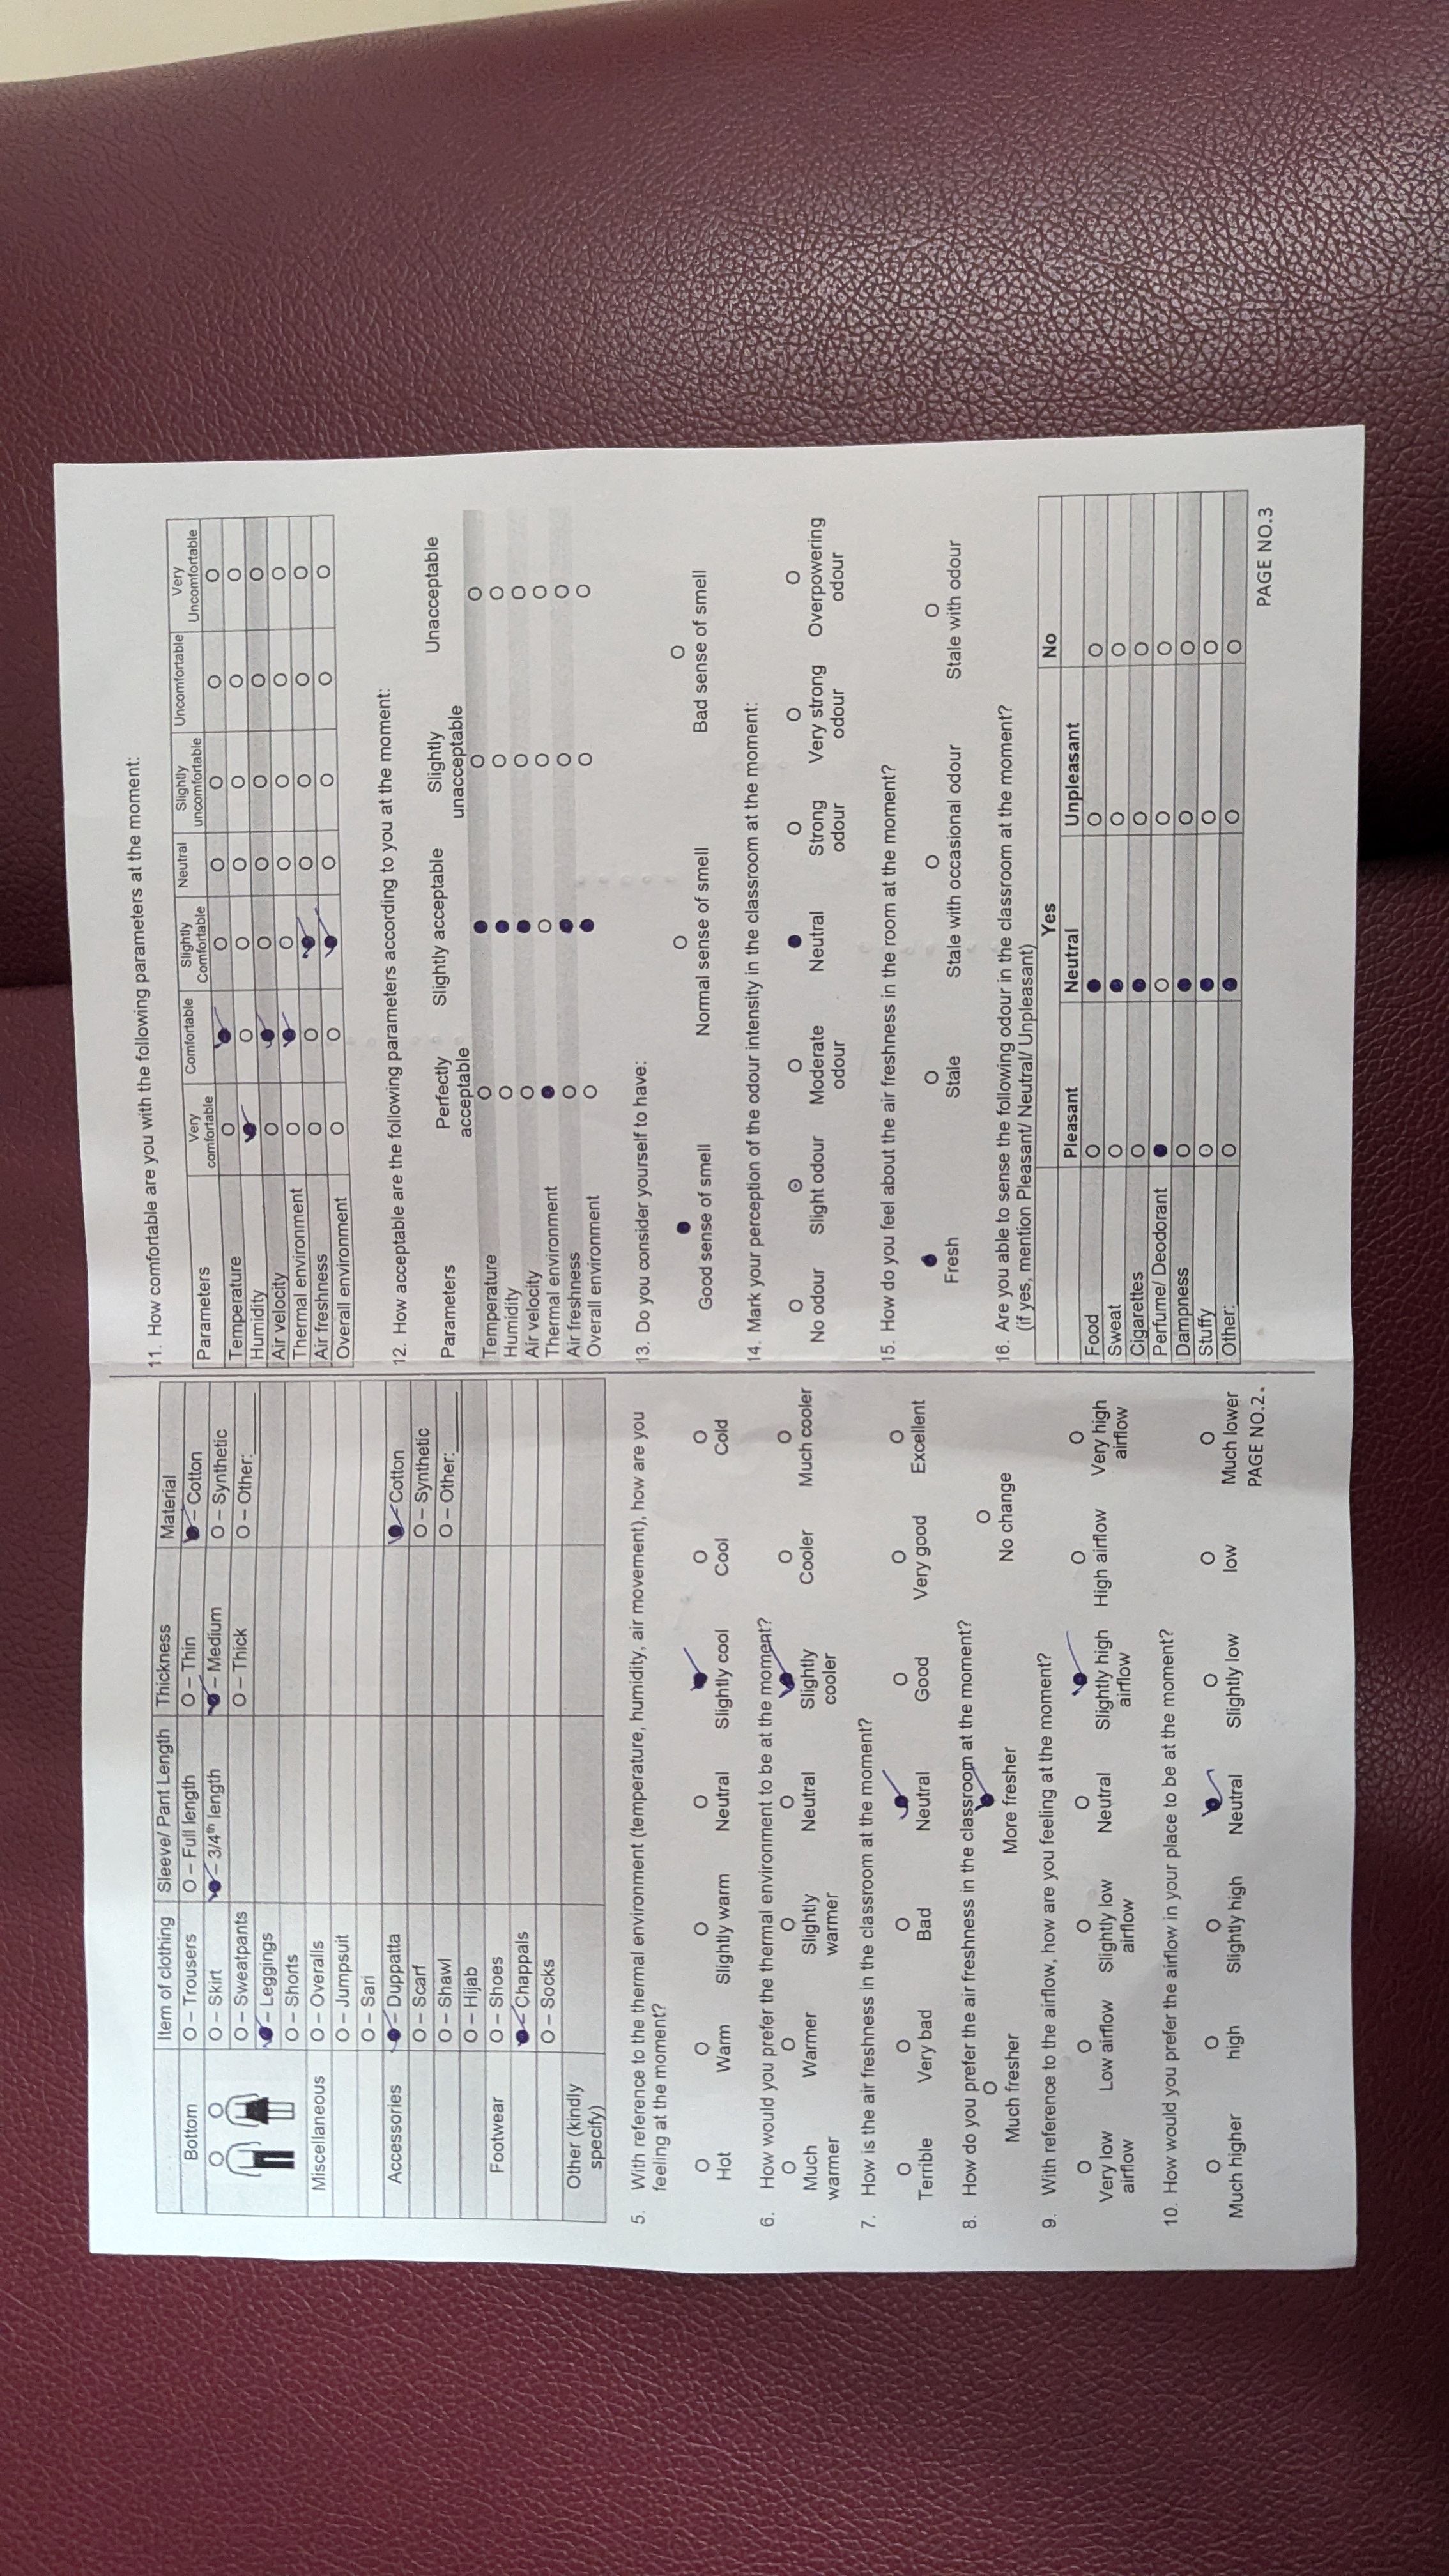 Item of clothing Sleeve/ Pant Length Thickness Material
Bottom O – Trousers O – Full length O – Thin – Cotton
O – Skirt – 3/4th length – Medium O – Synthetic
O – Sweatpants O – Thick O – Other:______
– Leggings
O – Shorts
Miscellaneous O – Overalls
O – Jumpsuit
O – Sari
Accessories – Duppatta – Cotton
O – Scarf O – Synthetic
O – Shawl O – Other:______
O – Hijab
Footwear O – Shoes
– Chappals
O – Socks
Other (kindly
specify)
5. With reference to the thermal environment (temperature, humidity, air movement), how are you
feeling at the moment?
Hot Warm Slightly warm Neutral Slightly cool Cool Cold
6. How would you prefer the thermal environment to be at the moment?
Much Warmer Slightly Neutral Slightly Cooler Much cooler
warmer warmer cooler
7. How is the air freshness in the classroom at the moment?
Terrible Very bad Bad Neutral Good Very good Excellent
8. How do you prefer the air freshness in the classroom at the moment?
Much fresher More fresher No change
9. With reference to the airflow, how are you feeling at the moment?
Very low Low airflow Slightly low Neutral Slightly high High airflow Very high
airflow airflow airflow airflow
10. How would you prefer the airflow in your place to be at the moment?
Much higher high Slightly high Neutral Slightly low low Much lower
PAGE NO.2.
11. How comfortable are you with the following parameters at the moment:
Parameters Very Comfortable Slightly Neutral Slightly Uncomfortable Very
comfortable Comfortable uncomfortable Uncomfortable
Temperature
Humidity
Air velocity
Thermal environment
Air freshness
Overall environment
12. How acceptable are the following parameters according to you at the moment:
Parameters Perfectly Slightly acceptable Slightly Unacceptable
acceptable unacceptable
Temperature
Humidity
Air velocity
Thermal environment
Air freshness
Overall environment
13. Do you consider yourself to have:
Good sense of smell Normal sense of smell Bad sense of smell
14. Mark your perception of the odour intensity in the classroom at the moment:
No odour Slight odour Moderate Neutral Strong Very strong Overpowering
odour odour odour odour
15. How do you feel about the air freshness in the room at the moment?
Fresh Stale Stale with occasional odour Stale with odour
16. Are you able to sense the following odour in the classroom at the moment?
(if yes, mention Pleasant/ Neutral/ Unpleasant)
Yes No
Pleasant Neutral Unpleasant
Food
Sweat
Cigarettes
Perfume/ Deodorant
Dampness
Stuffy
Other:__________
PAGE NO.3